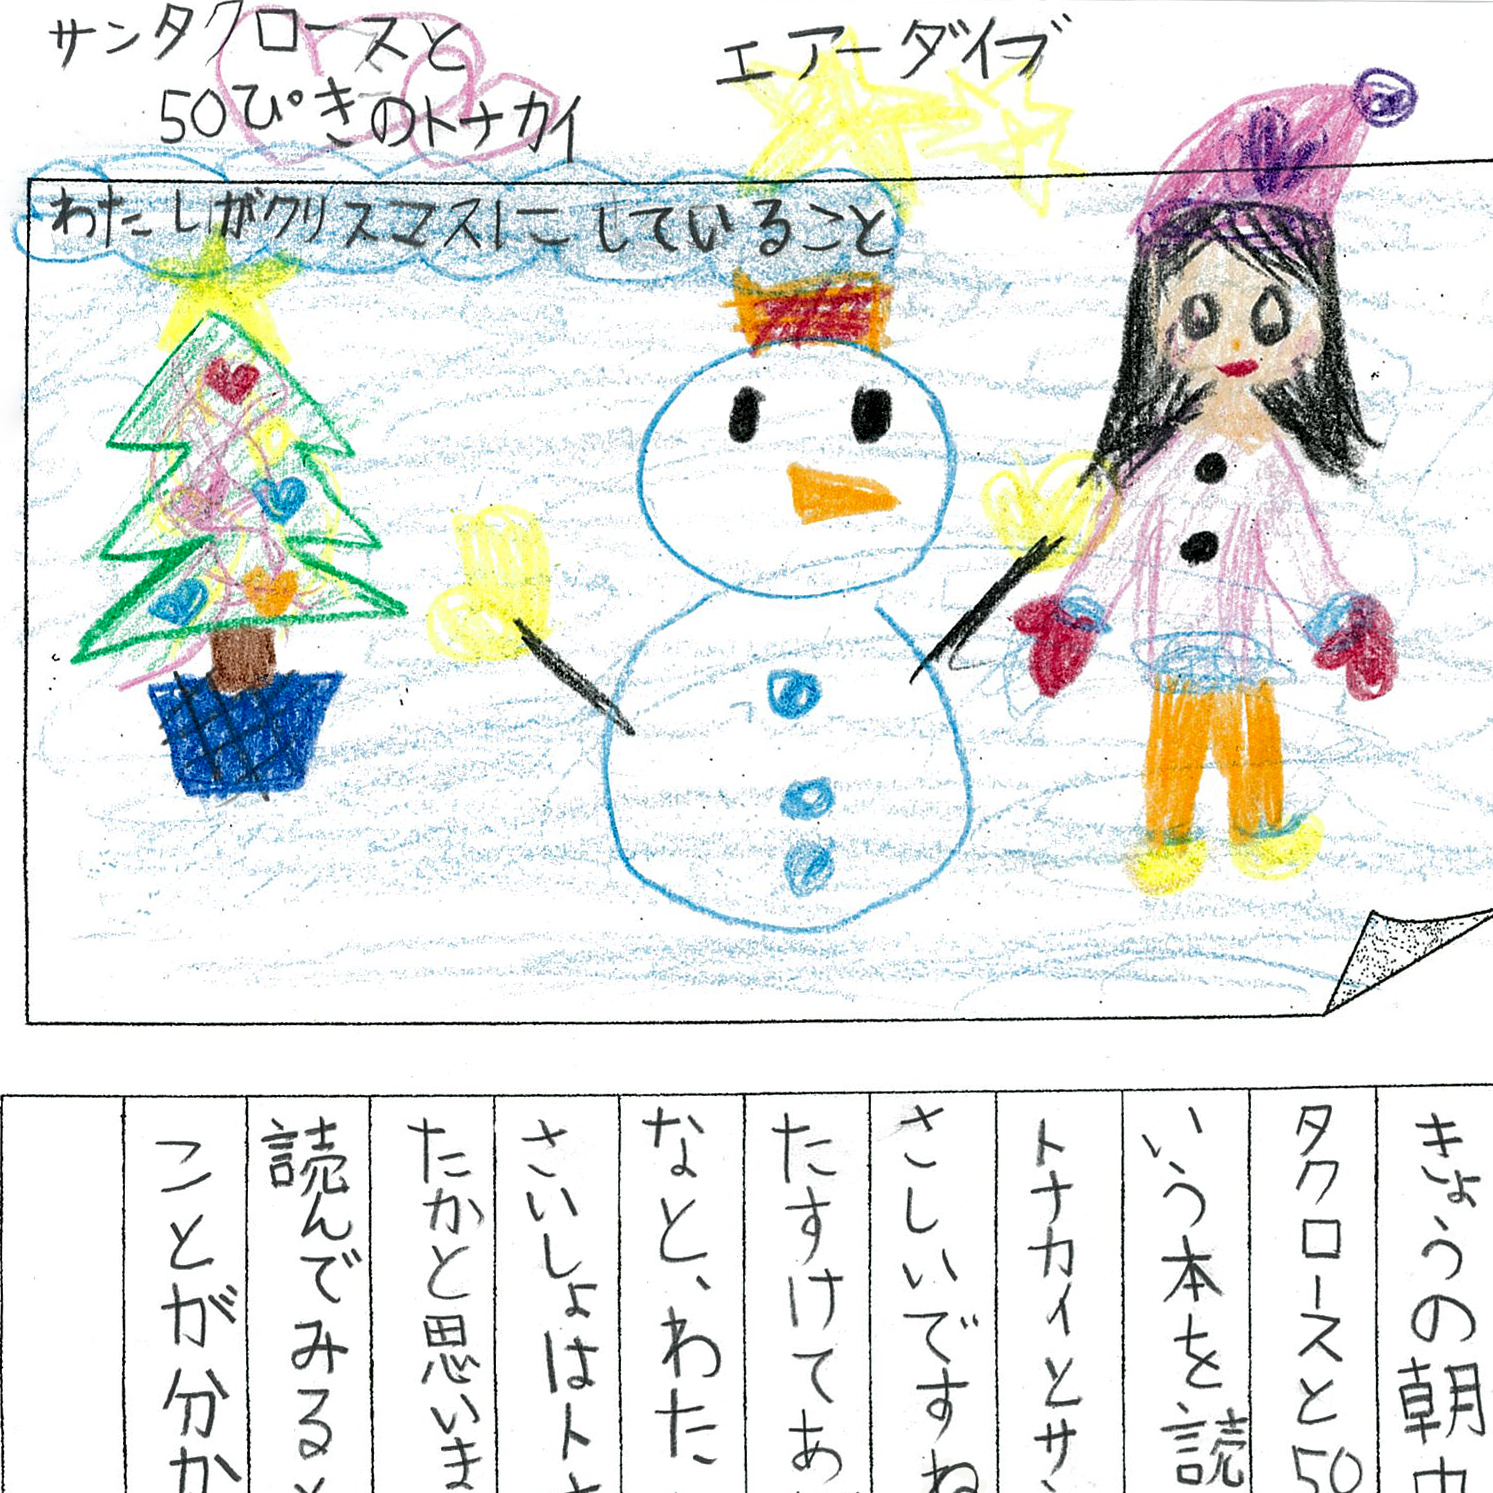 サンタクロースと
50ぴきのトナカイ
エアーダイブ
わたしがクリスマスにしていること
きょうの朝
タクロースと50
いう本を読
トナカイとサ
さしいですね
たすけてあ
なと、わた
さいしょはト
たかと思いま
読んでみると
ことが分か